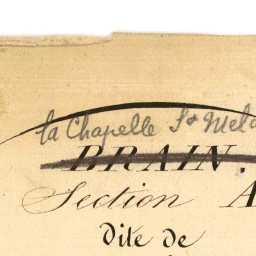 la Chapelle St Mela
BRAIN.
Section A
Dite de